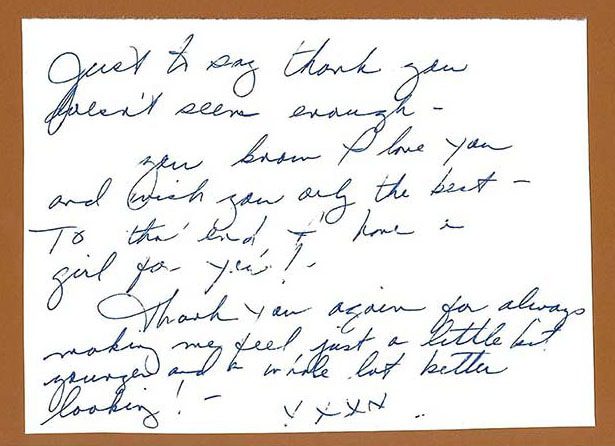 Just to say thank you
doesn't seem enough -
you know I love you
and wish you only the best -
To tha' end I have a
girl for you! -
Thank you again for always
making me feel just a little bit
younger and a whole lot better
looking! -
XXXX